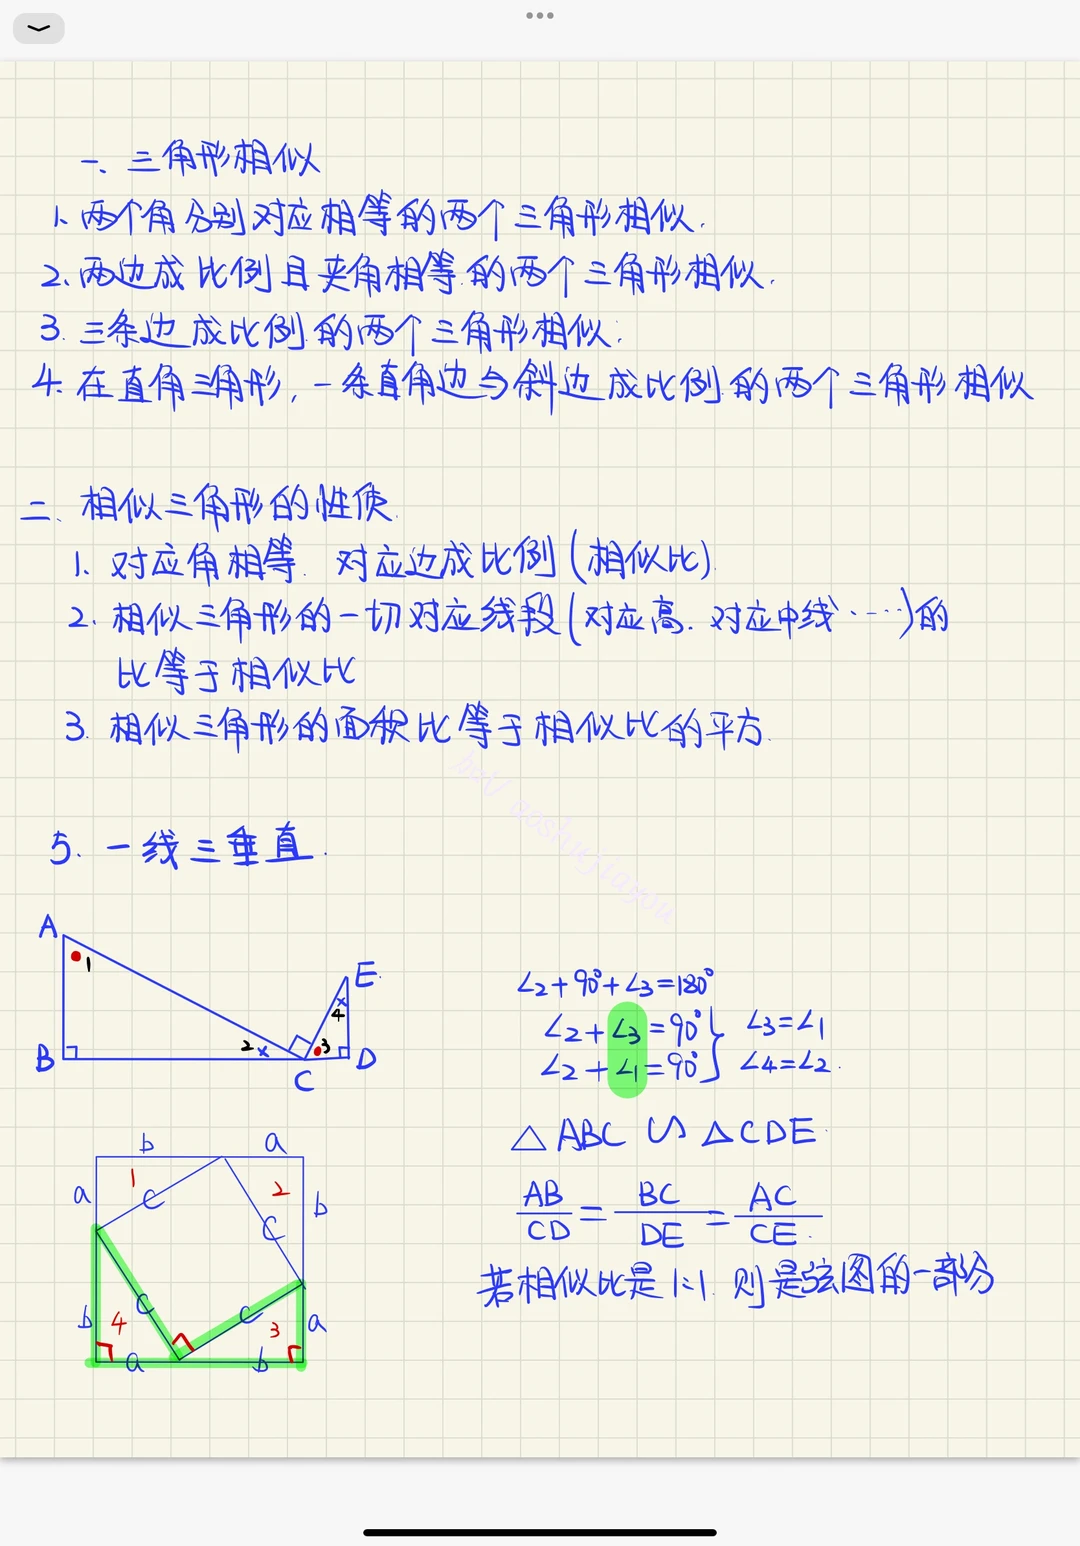 一、三角形相似
1、两个角分别对应相等的两个三角形相似.
2、两边成比例且夹角相等的两个三角形相似.
3. 三条边成比例的两个三角形相似.
4. 在直角三角形，一条直角边与斜边成比例的两个三角形相似
二、相似三角形的性质
1、对应角相等. 对应边成比例(相似比).
2、相似三角形的一切对应线段(对应高. 对应中线、……)的
比等于相似比
3. 相似三角形的面积比等于相似比的平方.
5. 一线三垂直.
A
1
E
4
2 × 3
B
C
D
∠2+90°+∠3=180°
∠2+∠3=90° } ∠3=∠1
∠2+∠1=90° } ∠4=∠2.
△ABC ∽ △CDE
AB/CD = BC/DE = AC/CE.
若相似比是1:1. 则是弦图的一部分
b a
a 1 C 2 b
C
b 4 C C 3 a
a b